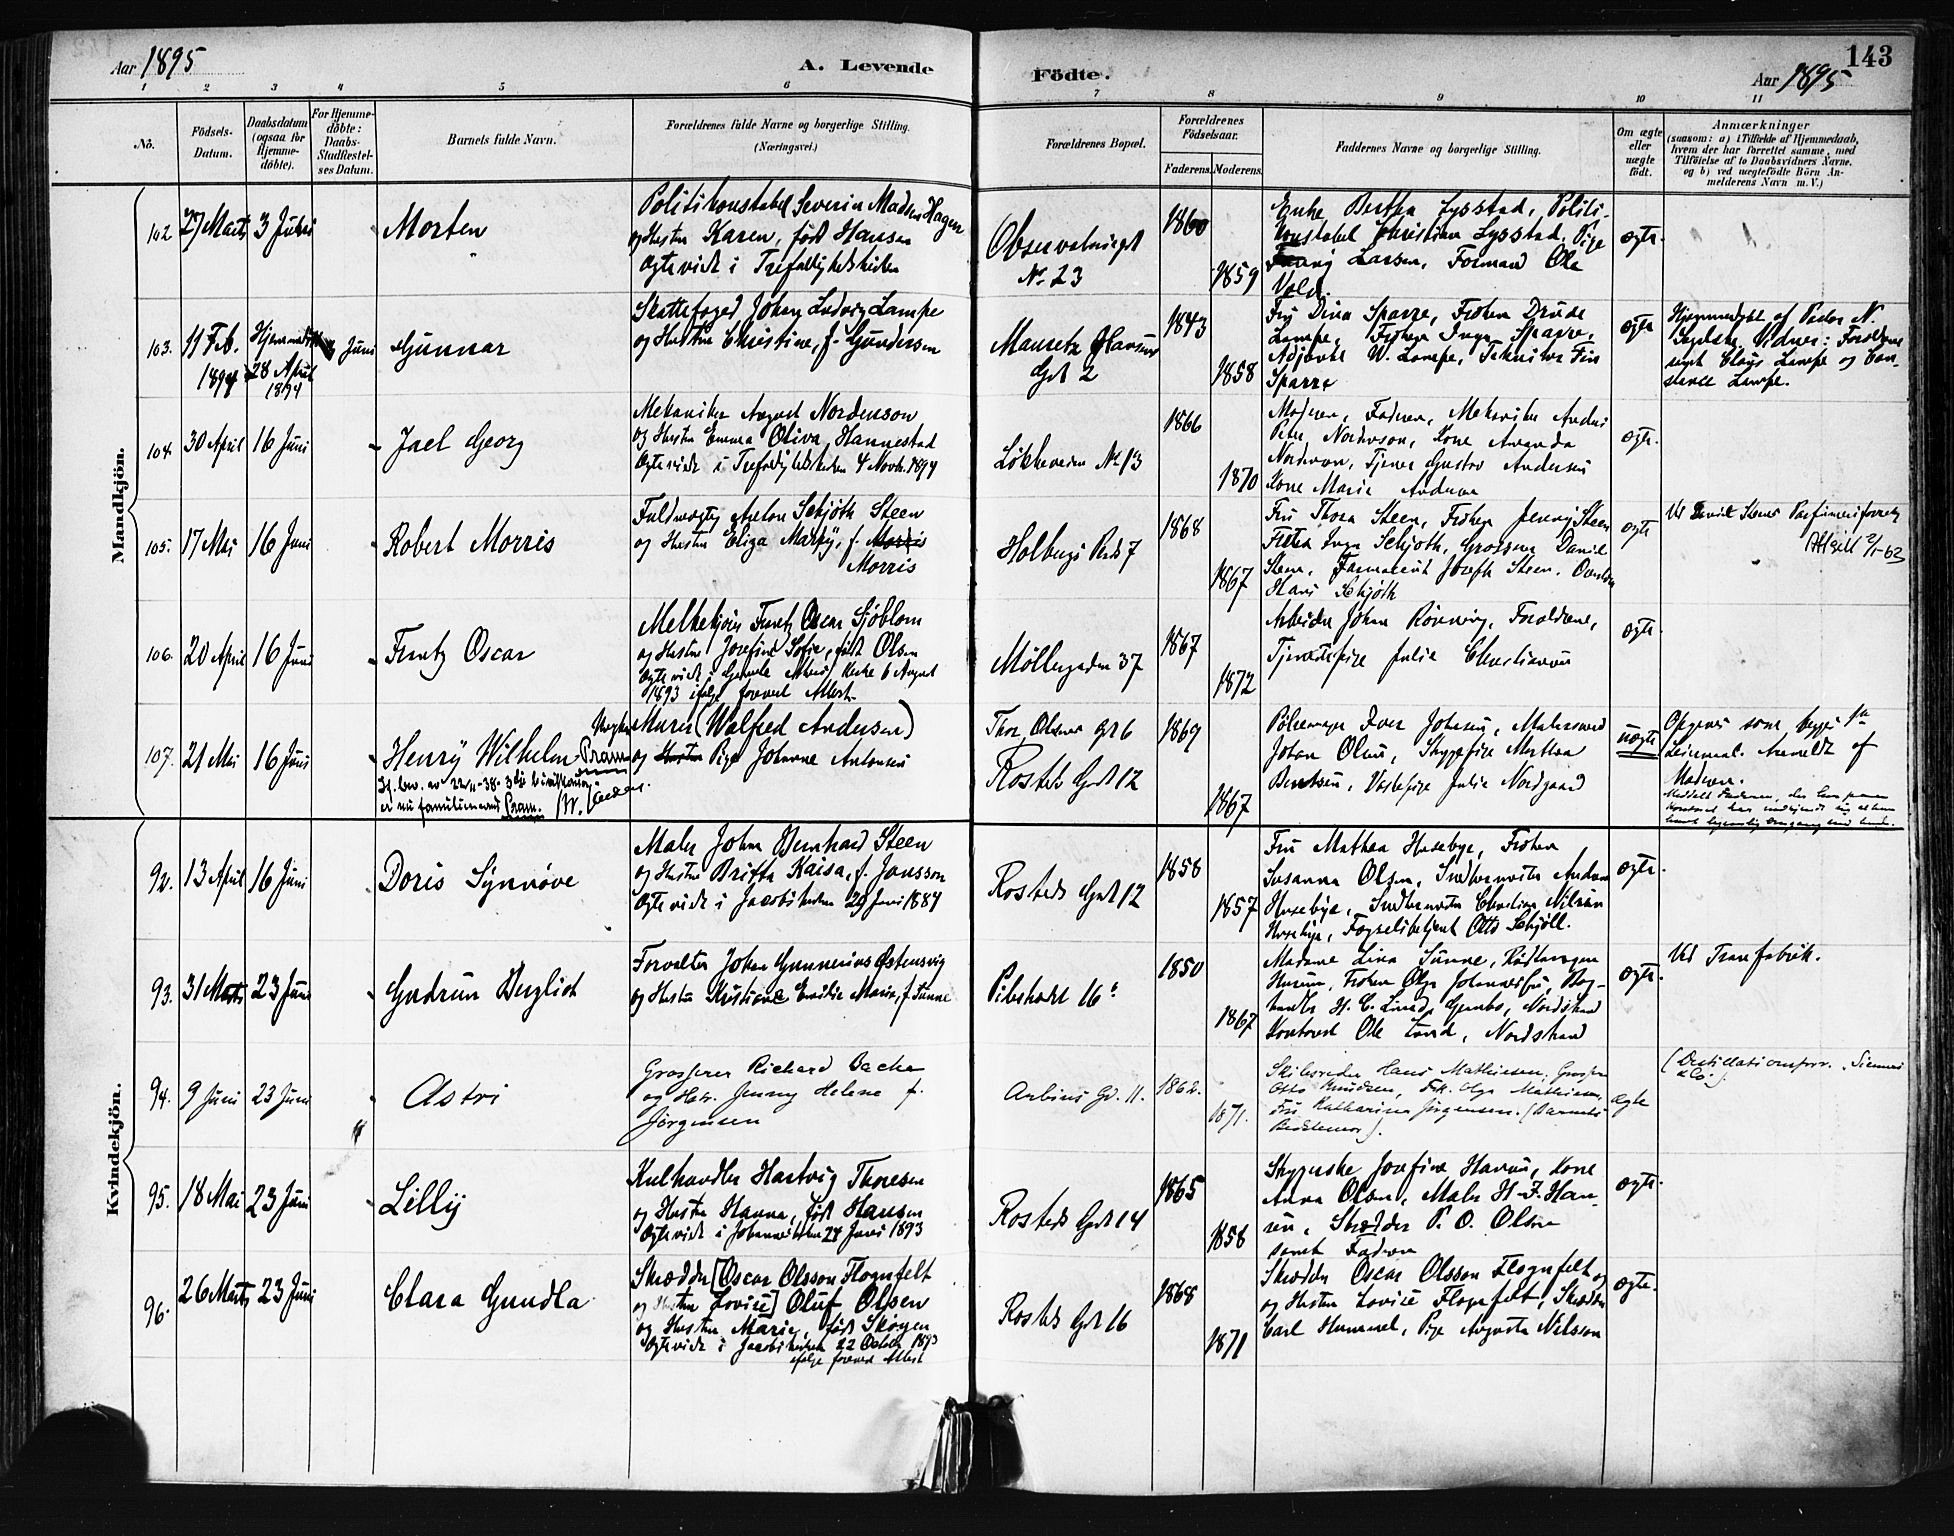 143
Aar 1895
A. Levende
Födte.
Aar 1895
1 2 3 4 5 6 7 8 9 10 11
No.
Födsels-
Datum.
Daabsdatum
(ogsaa for
Hjemme-
döbte).
For Hjemme-
döbte:
Daabs-
Stadfæstel-
ses Datum.
Barnets fulde Navn.
Forældrenes fulde Navne og borgerlige Stilling.
(Næringsvei.)
Forældrenes Bopæl.
Forældrenes
Födselsaar.
Faderens. Moderens.
Faddernes Navne og borgerlige Stilling.
Om ægte
eller
uægte
födt.
Anmærkninger
(saasom: a) i Tilfælde af Hjemmedaab,
hvem der har forrettet samme, med
Tilföielse af to Daabsvidners Navne,
og b) ved uægtefödte Börn An-
melderens Navn m. V.)
Mandkjön.
102 27 Marts 3 Juni
Morten
Politikonstabel Severin Madsen Hagen
og Hustru Karen, født Hansen
Ægteviet i Trefoldighedskirken
Observatoriegt
No 23
1860
1859
Enke Bertha Lysstad, Politi-
konstabel Christian Lysstad, Pige
Larsen, Formand Ole
Vold.
ægte.
103. 11 Feb.
1894
28 April
1894
Juni
Gunnar
Skattefoged Johan Ludvig Lampe
og Hustru Christine, f. Gundersen
Mauritz Hansens
Gd 2
1843
1858
Fru Dina Sparre, Frøken Drude
Lampe, Frøken Inga Sparre,
Adjunkt W. Lampe, Tekniker Finn
Sparre
ægte
Hjemmedøbt af Pastor N.
Vidner: Forældrene
samt Claus Lampe og Con-
stance Lampe.
104. 30 April 16 Juni
Joel Georg
Mekaniker August Nordenson
og Hustru Emma Oliva Hannestad
Ægteviet i Trefoldighedskirken 4 Novb. 1894
Løkkeveien No 13
1866
1870
Moderen, Faderen, Mekaniker Anders
Peter Nordenson, Kone Amanda
Nordenson, Tjener Gustav Andersen
Kone Marie Andersen
ægte.
105. 17 Mai 16 Juni
Robert Morris
Fuldmægtig Anton Schjøth Steen
og Hustru Eliza Mary, f. Morris
Morris
Holbergs Plads 7
1868
1867
Fru Thora Steen, Frøken Jenny Steen
Frøken Inga Schjøth, Grosserer Daniel
Steen, Farmaceut Joseph Steen,
Hans Schjøth
ægte
Ved Daniel Steens Parfumeriforretn
Attest 2/1-62
106. 20 April 16 Juni
Frantz Oscar
Melkekjører Frantz Oscar Sjöblom
og Hustru Josefine Sofie, født Olsen
Ægteviet i Gamle Akers Kirke 6 August
1893 ifølge forevist Attest
Møllergaden 37
1867
1872
Arbeider Johan Rønning, Forældrene,
Tjenestepige Julie Christiansen
ægte.
107. 21 Mai 16 Juni
Henry Wilhelm Pram
Hf. bev. av 22/11-38
er nu familienavnet Pram.
Murer (Walfred Andersen)
og Pige Johanne Antonsen
Thor Olsens Gd 6
Rosteds Gd 12
1869
1867
Iver Johnsen, Malersvend
Johan Olsen, Martha
Berntsen, Julie Nordgaard
uægte
Opgives som begges 1ste
Leiermaal. Anmeldt af
Moderen.
Kvindekjön.
92. 13 April 16 Juni
Doris Synnøve
Maler John Bernhard Steen
og Hustru Britta Kaisa, f. Jonsson
Ægteviet i Jacobskirken 29 Juni 1884
Rosteds Gd 12
1858
1857
Fru Mathea Husebye, Frøken
Susanna Olsen, Snedkermester Andreas
Husebye, Snedkermester Christian Nilsen
Husebye, Fængselsbetjent Otto Schjøll.
ægte.
93. 31 Marts 23 Juni
Gudrun Bergliot
Forvalter Johan Gunnerius Østensvig
og Hustru Kristiane Emilie Marie, f. Sunne
Pilestrædet 16
1850
1867
Madame Lina Sunne,
Frøken Olga Johannesen, Bog-
handler H. C. Lund, Nordstrand
Kontorist Ole Lund, Nordstrand
ægte.
Ved Tranfabrik.
94. 9 Juni 23 Juni
Astri
Grosserer Richard Bache
og Hstr. Jenny Helene f.
Jörgensen
Arbins Gd. 11.
1862.
1871.
Skibsreder Hans Mathiesen, Grosserer
Otto Knudsen, Frk. Olga Mathiesen,
Fru Katharina Jörgensen. (Barnets
Bedstemor).
ægte
(Destillationsforr. Siemers
& Co.).
95. 18 Mai 23 Juni
Lilly
Kulhandler Hartvig Thoresen
og Hustru Hanna, født Hansen
Ægteviet i Johanneskirken 24 Juni 1893
Rosteds Gd 14
1865
1858
Josefine Hansen, Kone
Anna Olsen, Maler H. J. Han-
sen, Skrædder P. O. Olsen
samt Faderen
ægte.
96. 26 Marts 23 Juni
Clara Gundla
Skrædder [Oscar Olsson Flognfelt
og Hustru Lovise] Oluf Olsen
og Hustru Marie, født Skogen
Ægteviet i Jacobskirken 22 October 1893
ifølge forevist Attest
Rosteds Gd 16
1868
1871
Skrædder Oscar Olsson Flognfelt og
og Hustru Lovise Flognfelt, Skrædder
Carl Hummel, Pige Augusta Nilsson
ægte.